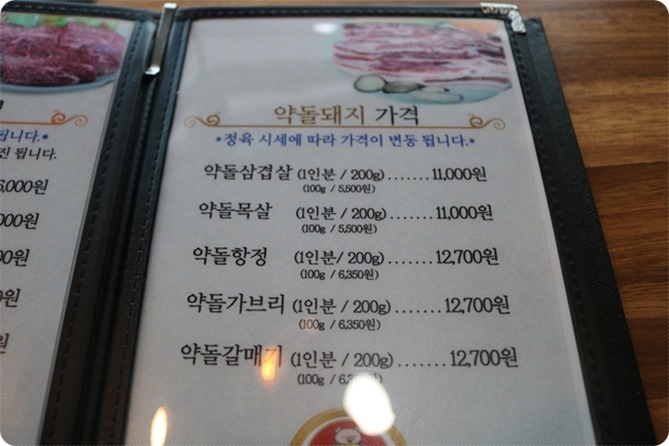 니다.*
진 됩니다.
6,000원
000원
00원
0원
원
약돌돼지 가격
*정육 시세에 따라 가격이 변동 됩니다.*
약돌삼겹살 (1인분 / 200g) ....... 11,000원
(100g / 5,500원)
약돌목살 (1인분 / 200g) ....... 11,000원
(100g / 5,500원)
약돌항정 (1인분/ 200g) ....... 12,700원
(100g / 6,350원)
약돌가브리 (1인분 / 200g) ....... 12,700원
(100g / 6,350원)
약돌갈매기 (1인분 / 200g) ....... 12,700원
(100g /